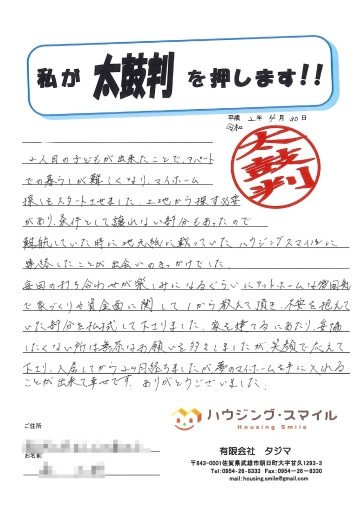 私が 太鼓判 を押します!!
平成 2年 4月 30日
令和
太鼓判
2人目の子どもが出来たことで、アパート
での暮らしが難しくなり、マイホーム
探しをスタートさせました。土地から探す必要
があり、条件として譲れない部分もあったので
難航していた時に地元紙に載っていたハウジングスマイルに
連絡したことが出会いのきっかけでした。
毎回の打ち合わせが楽しみになるくらいにアットホームな雰囲気
で家づくりや資金面に関して1から教えて頂き、不安を抱えて
いた部分を払拭して下さりました。家を建てるにあたり、妥協
したくない所は無茶なお願いも多々しましたが笑顔で応えて
下さり、入居してから2ヶ月経ちましたが夢のマイホームを手に入れる
ことが出来て幸せです。ありがとうございました。
ハウジング・スマイル
Housing Smile
ご住所
お名前
有限会社 タジマ
〒843-0001佐賀県武雄市朝日町大字甘久1293-3
Tel:0954-26-8333 Fax:0954-26-8330
mail:housing.smile@gmail.com